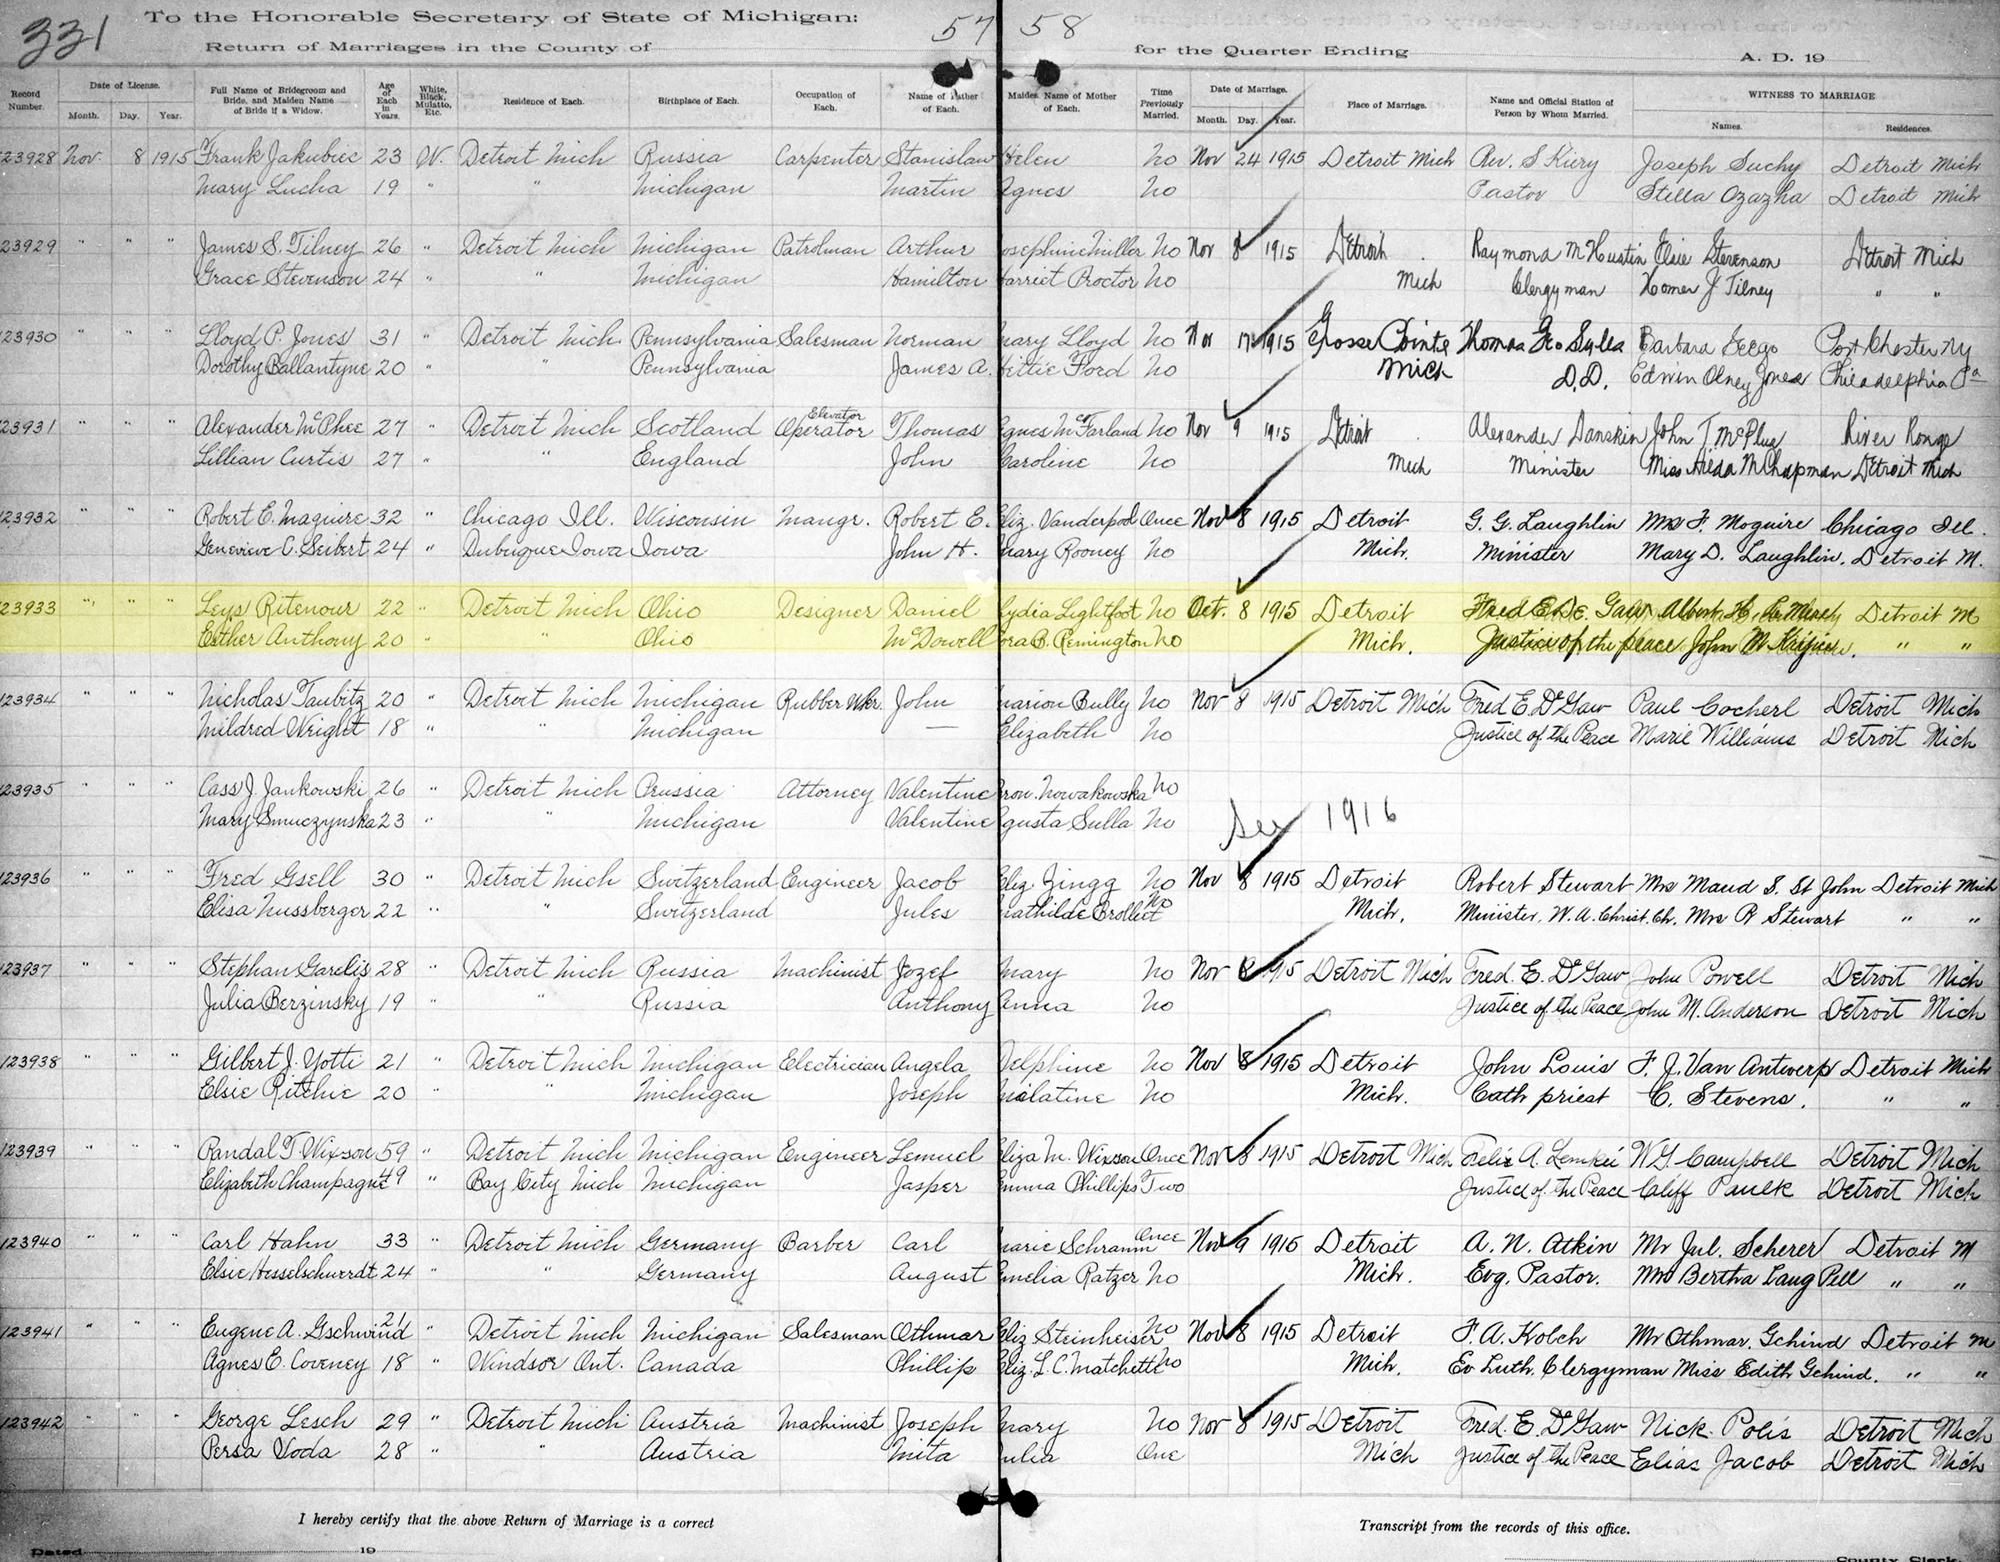 331
To the Honorable Secretary of State of Michigan:
57 58
Return of Marriages in the County of
for the Quarter Ending
A. D. 19
Record Number. Date of License. Month. Day. Year. Full Name of Bridegroom and Bride, and Maiden Name of Bride if a Widow. Age of Each in Years. White, Black, Mulatto, Etc. Residence of Each. Birthplace of Each. Occupation of Each. Name of Father of Each. Maiden Name of Mother of Each. Time Previously Married. Date of Marriage. Month. Day. Year. Place of Marriage. Name and Official Station of Person by Whom Married. WITNESS TO MARRIAGE Names. Residences.
23928 Nov. 8 1915 Frank Jakubiec 23 W. Detroit Mich Russia Carpenter Stanislaw Helen No Nov 24 1915 Detroit Mich Rev. S Joseph Suchy Detroit Mich
Mary Lucha 19 " " Michigan Martin Agnes No Pastor Stella Detroit Mich
23929 " " " James S. Tilney 26 " Detroit Mich Michigan Patrolman Arthur osephine Miller No Nov 8 1915 Detroit Raymond M Hustin Elsie Stevenson Detroit Mich
Grace Stevenson 24 " " Michigan Hamilton arriet Proctor No Mich Clergyman Homer J Tilney " "
23930 " " " Lloyd P. Jones 31 " Detroit Mich Pennsylvania Salesman Norman ary Lloyd No Nov 17 1915 Grosse Pointe Thomas Geo Barbara Port Chester Ny
Dorothy Ballantyne 20 " Pennsylvania James A. ettie Ford No Mich D.D. Edwin Olney Jones Philadelphia Pa
23931 " " " Alexander McPhee 27 " Detroit Mich Scotland Elevator Operator Thomas gnes McFarland No Nov 9 1915 Detroit Alexander Danskin John T. River Rouge
Lillian Curtis 27 " " England John Caroline No Mich Minister Miss Hilda M Chapman Detroit Mich
123932 " " " Robert E. Maguire 32 " Chicago Ill. Wisconsin Mangr. Robert E. Eliz. Vanderpool Once Nov 8 1915 Detroit G. G. Laughlin Mrs F. Moguire Chicago Ill.
Genevieve C. Seibert 24 " Dubuque Iowa Iowa John H. Mary Rooney No Mich. Minister Mary D. Laughlin. Detroit M.
23933 " " " Leys Ritenour 22 " Detroit Mich Ohio Designer Daniel Lydia Lightfoot No Oct. 8 1915 Detroit Fred E. De Gaw Albert H. Detroit M
Esther Anthony 20 " " Ohio McDowell ora B. Remington No Mich. Justice of the peace John M. " "
123934 " " " Nicholas Taubitz 20 " Detroit Mich Michigan Rubber Wkr. John Marion Bully No Nov 8 1915 Detroit Mich Fred E. DeGaw Paul Cocherl Detroit Mich
Mildred Wright 18 " " Michigan — Elizabeth No Justice of the Peace Marie Williams Detroit Mich
123935 " " " Cass J. Jankowski 26 " Detroit Mich Prussia Attorney Valentine ron. Nowakowska No
Mary Smuczynska 23 " " Michigan Valentine gusta Sulla No See 1916
123936 " " " Fred Gsell 30 " Detroit Mich Switzerland Engineer Jacob Eliz Zingg No Nov 8 1915 Detroit Robert Stewart Mrs Maud S. St John Detroit Mich
Elisa Nussberger 22 " " Switzerland Jules Mathilde Brolliet No Mich. Minister, W. A. Christ. Ch. Mrs R Stewart " "
123937 " " " Stephan Garelis 28 " Detroit Mich Russia Machinist Jozef Mary No Nov 8 1915 Detroit Mich Fred. E. DeGaw John Powell Detroit Mich
Julia Berzinsky 19 " " Russia Anthony Anna No Justice of the Peace John M. Anderson Detroit Mich
123938 " " " Gilbert J. Yotti 21 " Detroit Mich Michigan Electrician Angela Delphine No Nov 8 1915 Detroit John Louis F. J. Van Antwerp Detroit Mich
Elsie Ritchie 20 " Michigan Joseph No Mich. Cath priest C. Stevens. " "
123939 " " " Randal T Wixson 59 " Detroit Mich Michigan Engineer Lemuel Eliza M. Wixson Once Nov 8 1915 Detroit Mich Felix A. Lemkie W. G. Campbell Detroit Mich
Elizabeth Champagne 49 " Bay City Mich Michigan Jasper Emma Phillips Two Justice of the Peace Cliff Paulk Detroit Mich
123940 " " " Carl Hahn 33 " Detroit Mich Germany Barber Carl Marie Schramm Once Nov 9 1915 Detroit A. N. Atkin Mr Jul. Scherer Detroit M
Elsie Hesselschwerdt 24 " " Germany August Emelia Ratzer No Mich. Evg. Pastor. Mrs Bertha Laug Pell " "
123941 " " " Eugene A. Gschwind 21 " Detroit Mich Michigan Salesman Othmar Eliz Steinheiser No Nov 8 1915 Detroit F. A. Kolch Mr Othmar. Gchind Detroit M
Agnes E. Coveney 18 " Windsor Ont. Canada Phillip Eliz. L. C. Matchett No Mich. Ev Luth. Clergyman Miss Edith Gchind. " "
123942 " " " George Lesch 29 " Detroit Mich Austria Machinist Joseph Mary No Nov 8 1915 Detroit Fred. E. DeGaw Nick Polis Detroit Mich
Persa Voda 28 " " Austria Mita ulia One Mich Justice of the Peace Elias Jacob Detroit Mich
I hereby certify that the above Return of Marriage is a correct
Transcript from the records of this office.
Dated 19
County Clerk.